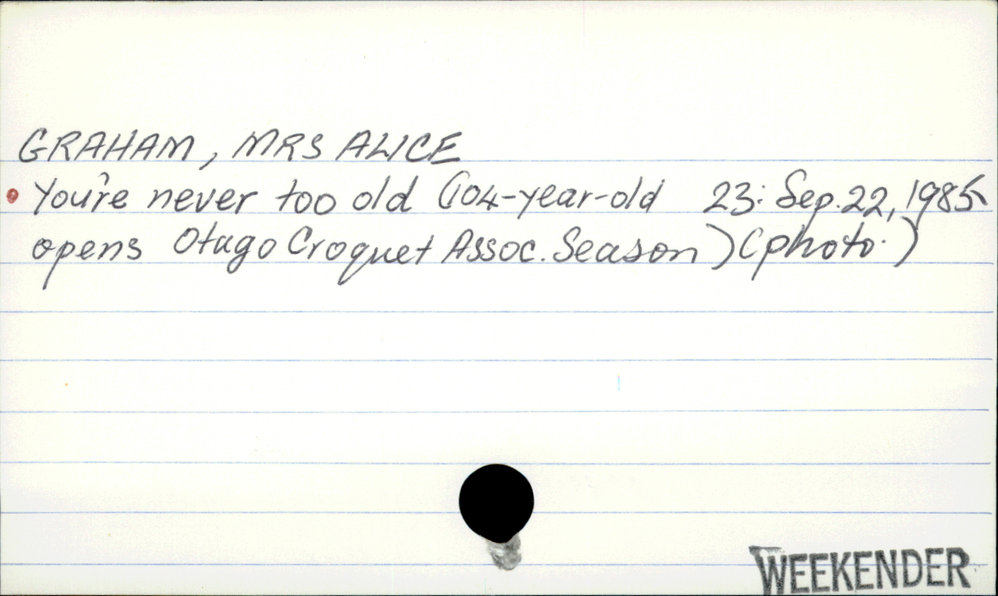 GRAHAM, MRS ALICE
You're never too old (104-year-old 23: Sep. 22, 1985
opens Otago Croquet Assoc. Season) (photo.)
WEEKENDER